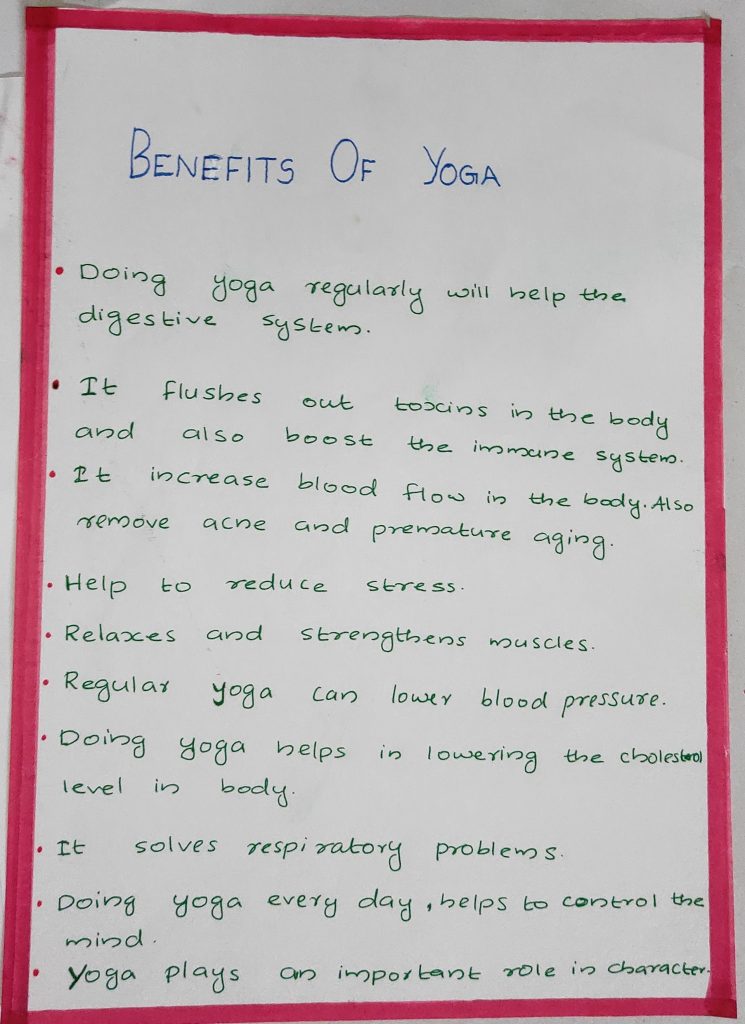 BENEFITS OF YOGA
• Doing yoga regularly will help the
digestive system.
• It flushes out toxins in the body
and also boost the immune system.
• It increase blood flow in the body. Also
remove acne and premature aging.
• Help to reduce stress.
• Relaxes and strengthens muscles.
• Regular yoga can lower blood pressure.
• Doing yoga helps in lowering the cholestrol
level in body.
• It solves respiratory problems.
• Doing yoga every day, helps to control the
mind.
• Yoga plays an important role in character.